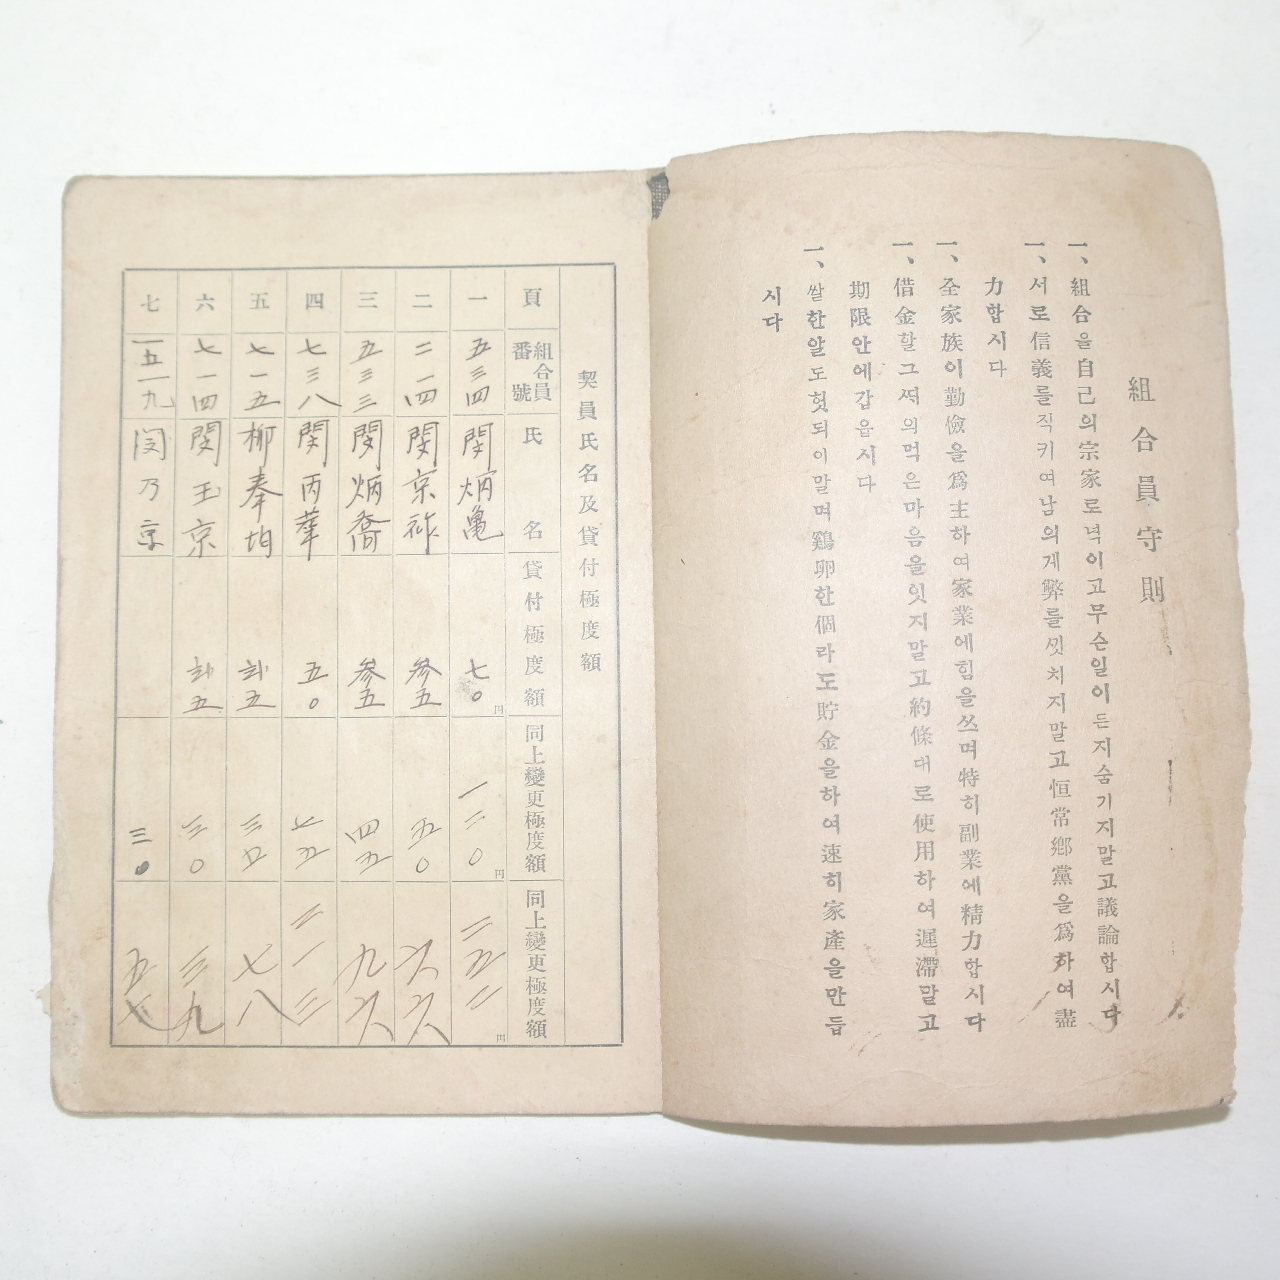 組合員守則
一、組合을自己의宗家로녁이고무슨일이든지숨기지말고議論합시다
一、서로信義를직키여남의게弊를씻치지말고恒常鄕黨을爲하여盡
力합시다
一、全家族이勤儉을爲主하여家業에힘을쓰며特히副業에精力합시다
一、借金할그쩍의먹은마음을잇지말고約條대로使用하여遲滯말고
期限안에갑읍시다
一、쌀한알도헛되이말며鷄卵한個라도貯金을하여速히家產을만듭
시다
契員氏名及貸付極度額
頁 組合員番號 氏名 貸付極度額 同上變更極度額 同上變更極度額
一 五三四 閔炳亀 七〇円 一二〇円 二五二円
二 二一四 閔京祚 参五 五〇 六六
三 五三三 閔炳喬 参五 四五 九六
四 七三八 閔丙華 五〇 七五 二一三
五 七一五 柳奉均 弐五 三五 七八
六 七一四 閔玉京 弐五 三〇 三九
七 一五一九 閔乃京 三〇 五七